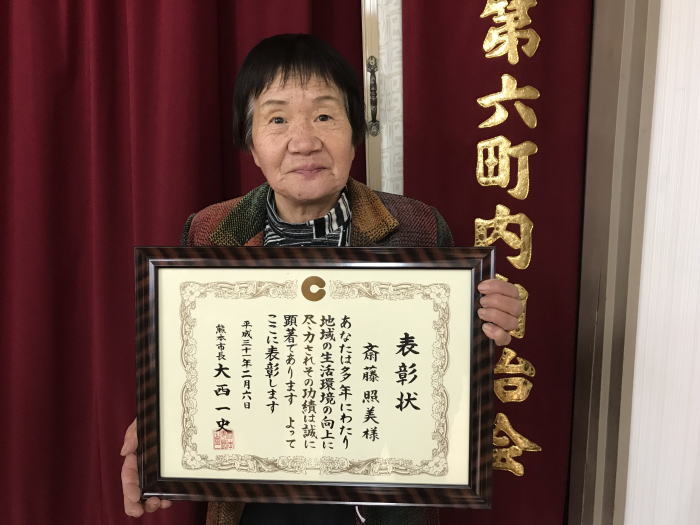 第六町内自治会
表彰状
斎藤照美様
あなたは多年にわたり
地域の生活環境の向上に
尽力されその功績は誠に
顕著であります よって
ここに表彰します
平成三十一年二月六日
熊本市長 大西一史